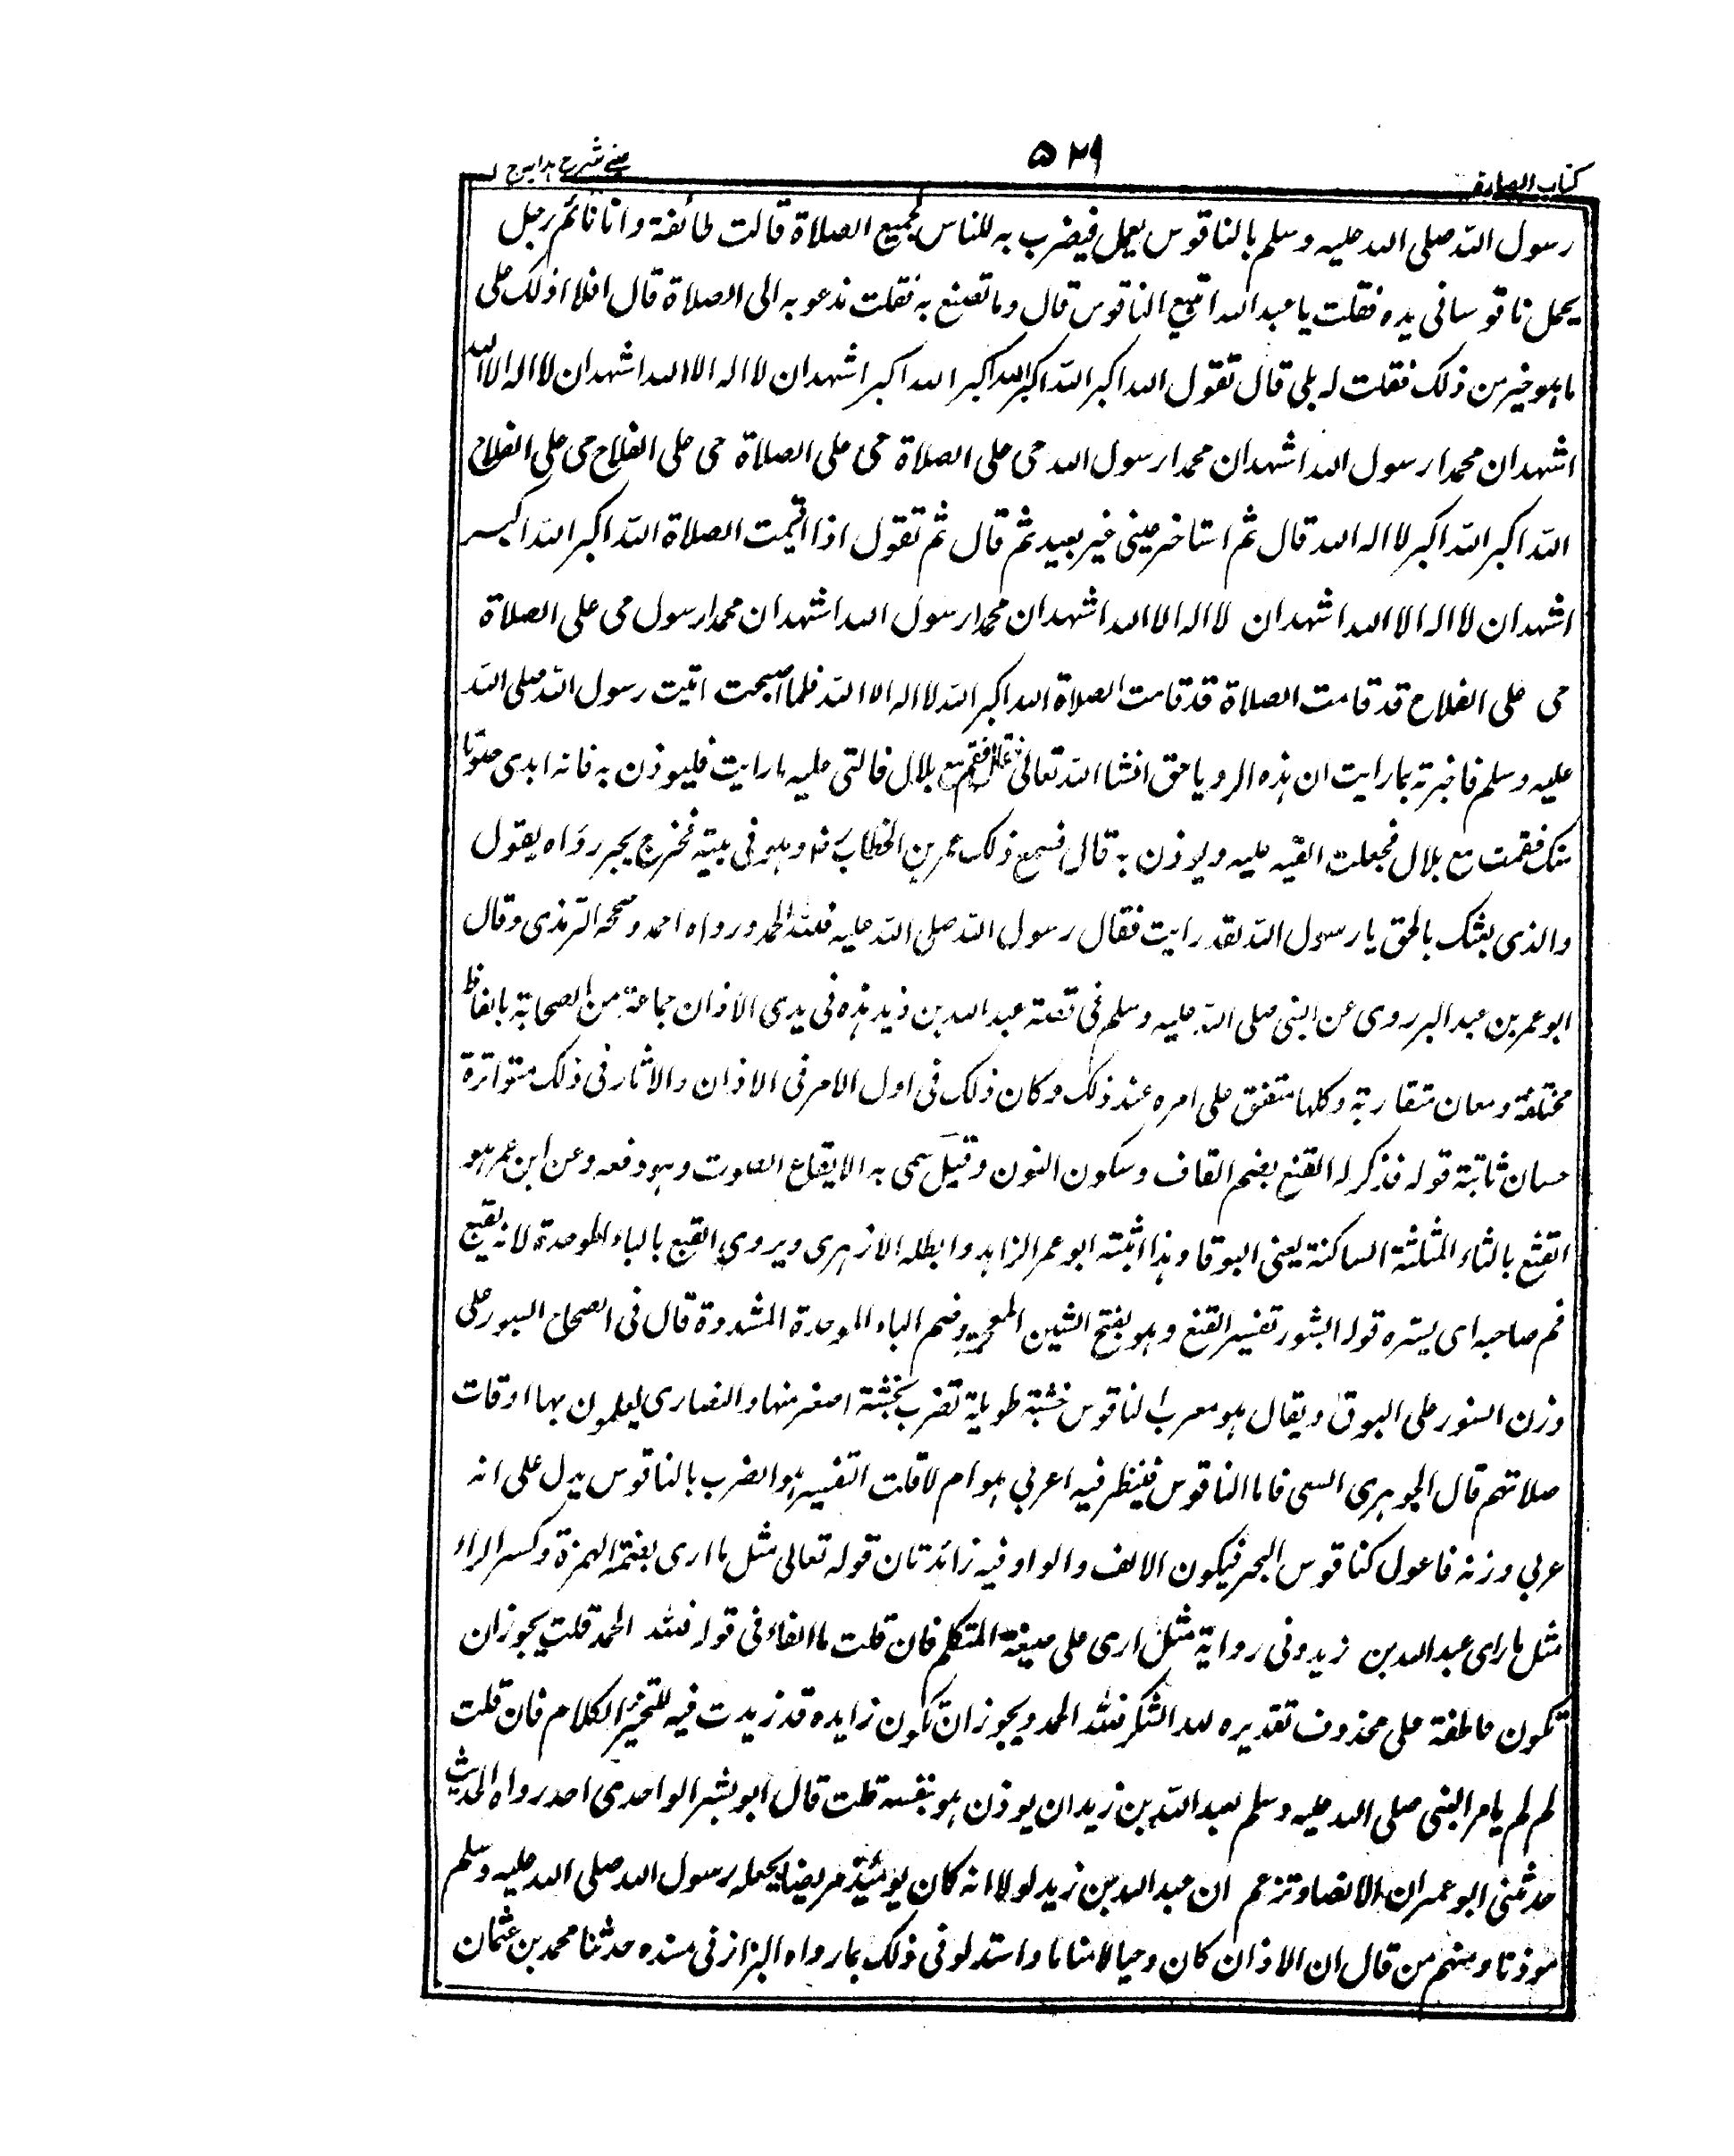 كتاب الصلوة
٥٢٩
عينى شرح هدايه ج ١
رسول الله صلى الله عليه وسلم بالناقوس يعمل فيضرب به للناس لجميع الصلاة قالت طائفة وانا نائم رجل
يحمل ناقوسا فى يده فقلت يا عبد الله اتبيع الناقوس قال وما تصنع به فقلت ندعو به الى الصلاة قال افلا اذلك على
ما هو خير من ذلك فقلت له بلى قال تقول الله اكبر الله اكبر الله اكبر الله اكبر اشهد ان لا اله الا الله اشهد ان لا اله الا الله
اشهد ان محمدا رسول الله اشهد ان محمدا رسول الله حى على الصلاة حى على الصلاة حى على الفلاح حى على الفلاح
الله اكبر الله اكبر لا اله الله قال ثم استاخر عينى غير بعيد ثم قال ثم تقول اذا اقيمت الصلاة الله اكبر الله اكبر
اشهد ان لا اله الا الله اشهد ان لا اله الا الله اشهد ان محمدا رسول الله اشهد ان محمدا رسول حى على الصلاة
حى على الفلاح قد قامت الصلاة قد قامت الصلاة الله اكبر الله لا اله الا الله فلما اصبحت اتيت رسول الله صلى الله
عليه وسلم فاخبرته بما رايت ان هذه الرويا حق انشا الله تعالى فقال فقم مع بلال فالقى عليه ما رايت فليوذن به فانه ابدى صوتا
منك فقمت مع بلال فجعلت القيه عليه ويوذن به قال فسمع ذلك عمر بن الخطاب رض وهو فى بيته فخرج يجر رداه يقول
والذى بعثك بالحق يا رسول الله لقد رايت فقال رسول الله صلى الله عليه فلله الحمد ورواه احمد وصححه الترمذى وقال
ابو عمر بن عبد البر روى عن النبى صلى الله عليه وسلم فى قصة عبد الله بن زيد هذه فى بدى الاذان جماعة من الصحابة بالفاظ
مختلفة ومعان متقاربة وكلها متفق على امره عند ذلك وكان ذلك فى اول الامر فى الاذان والاثار فى ذلك متواترة
حسان ثابتة قوله فذكر له القنع بضم القاف وسكون النون وقيل سمى به الايقاع الصوت وهو دفعه وعن ابن عمر هو
القثع بالثاء المثلثة الساكنة يعنى البوقا وهذا اثبته ابو عمر الزاهد وابطله الازهرى ويروى القبع بالباء الموحدة لانه يقبع
فم صاحبه اى يستره قوله الشبور تفسير القنع وهو بفتح الشين المعجمة وضم الباء الموحدة المشددة قال فى الصحاح السبور على
وزن السنور على البوق ويقال هو معرب الناقوس خشبة طويلة تضرب بخشبة اصغر منها والنصارى يعلمون بها اوقات
صلاتهم قال الجوهرى السى فاما الناقوس فينظر فيه اعربى هو ام لا قلت التفسير هو الضرب بالناقوس يدل على انه
عربى وزنه فاعول كناقوس البحر فيكون الالف والواو فيه زائدتان قوله تعالى مثل ما ارى بضمة الهمزة وكسر الراء
مثل ما راى عبد الله بن زيد وفى رواية مثل ارى على صيغة المتكلم فان قلت ما الفاء فى قوله فلله الحمد قلت يجوز ان
تكون عاطفة على محذوف تقديره لله الشكر فلله الحمد ويجوز ان تكون زايده قد زيدت فيه للتخير الكلام فان قلت
لم لم يامر النبى صلى الله عليه وسلم لعبد الله بن زيد ان يوذن هو بنفسه قلت قال ابو بشر الواحدى احد رواه الحديث
حدثنى ابو عمران الانصار تزعم ان عبد الله بن زيد لولا انه كان يومئذ مريضا يجعله رسول الله صلى الله عليه وسلم
موذنا ومنهم من قال ان الاذان كان وحيا لا مناما واستدلو فى ذلك بما رواه البزاز فى مسنده حدثنا محمد بن عثمان